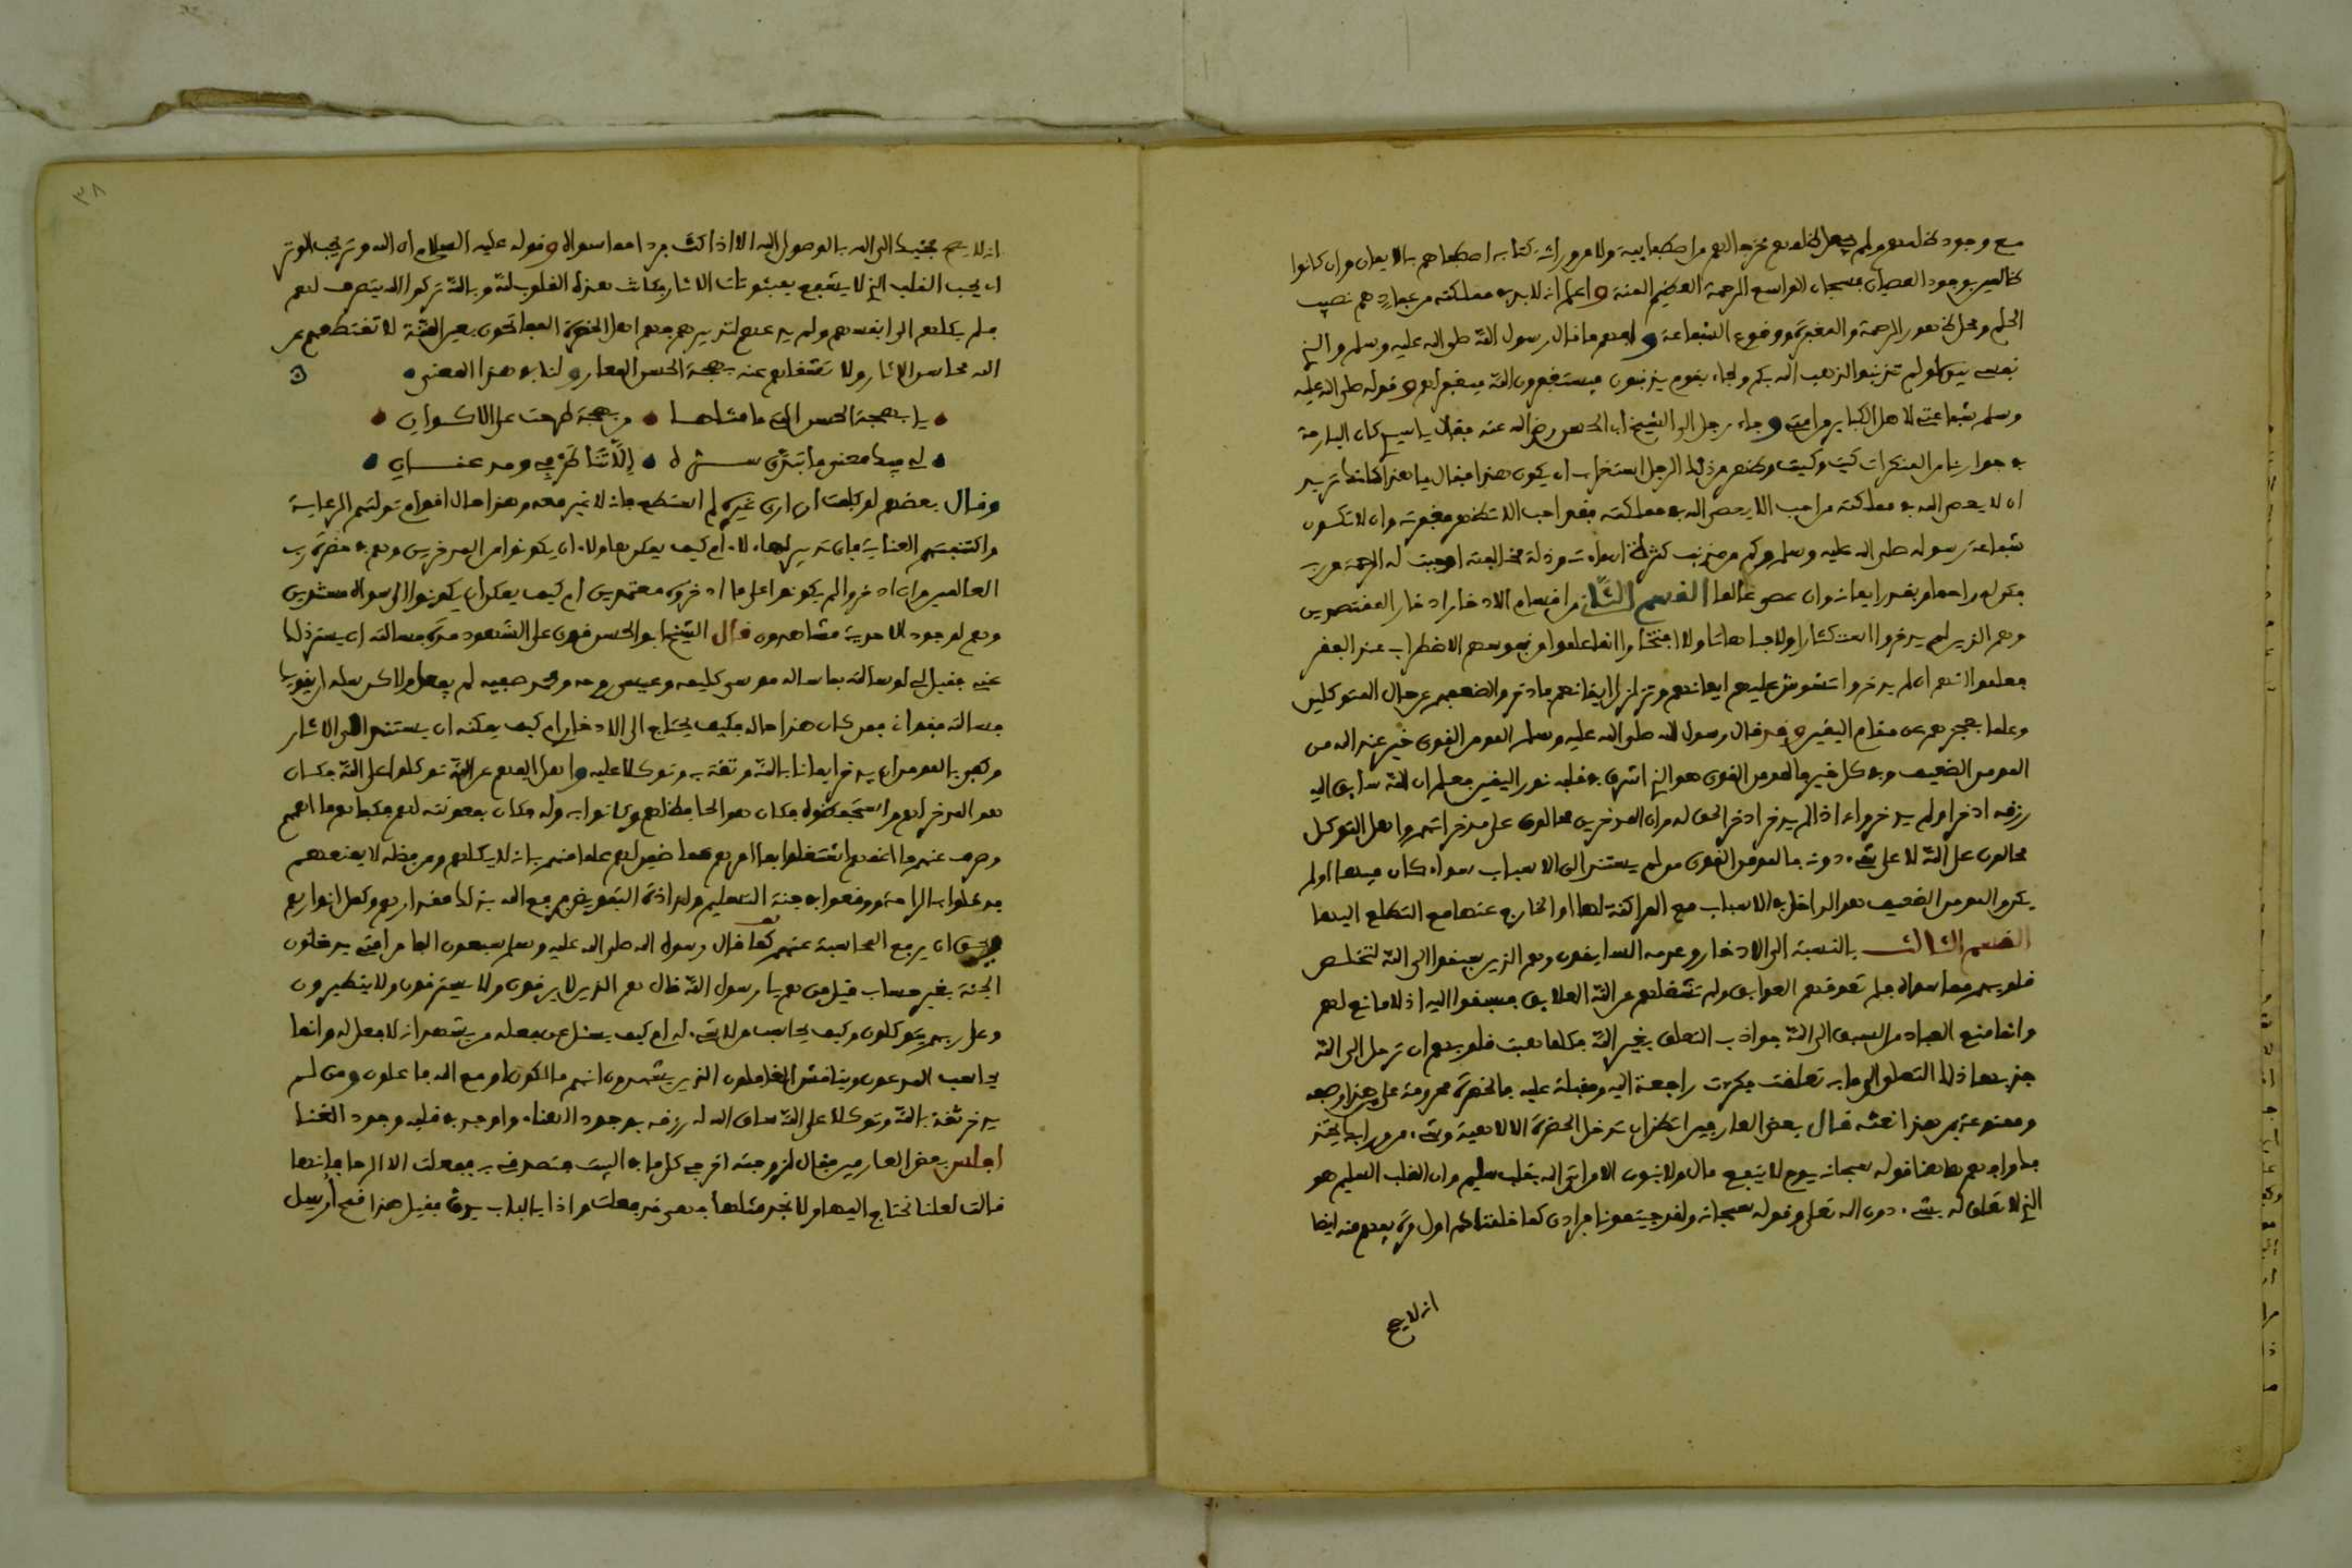 مع وجود ظلمهم ولم يجعل ظلمهم مخرجا لهم من اصطفائيته ولا من وراثة كتابه اصطفاهم بالايمان وان كانوا
ظالمين بوجود العصيان فسبحان الواسع الرحمة العظيم المنة واعلم انه لا بد في مملكته من عباد هم نصيب
الحلم ومحل ظهور الرحمة والمغفرة ووقوع الشفاعة وافهم ما قال رسول الله صلى الله عليه وسلم والذي
نفسي بيده لو لم تذنبوا لذهب الله بكم ولجاء بقوم يذنبون فيستغفرون الله فيغفر لهم وقوله صلى الله عليه
وسلم شفاعتي لاهل الكبائر من امتي وجاء رجل الى الشيخ ابي الحسن رضي الله عنه فقال يا سيدي كان البارحة
بجوارنا من المنكرات كيت وكيت وظهر من ذلك الرجل استغراب ان يكون هذا فقال يا هذا كانك تريد
ان لا يعصى الله في مملكته من احب الا يعصى الله في مملكته فقد احب الا تظهر مغفرته وان لا تكون
شفاعة رسوله صلى الله عليه وسلم وكم من مذنب كثرة اساءته وذلة مخالفته اوجبت له الرحمة من ربه
فكن له راحما وبقدر ايمانه وان عصى عالما القسم الثاني من اقسام الادخار ادخار المقتصدين
وهم الذين لم يدخروا استكثارا ولا مباهاة ولا افتخارا انما علموا من نفوسهم الاضطراب عند الفقر
فعلموا انهم ان لم يدخروا تشوش عليهم ايمانهم وتزلزل ايقانهم فادخروا لضعفهم عن حال المتوكلين
وعلما بعجزهم عن مقام اليقين وقد قال رسول الله صلى الله عليه وسلم المومن القوي خير عند الله من
المومن الضعيف وفي كل خير فالمومن القوي هو الذي اشرق في قلبه نور اليقين فعلم ان الله سائق اليه
رزقه ادخر او لم يدخر وانه اذا لم يدخر ادخر الحق له وان المدخرين محالون على مدخراتهم واهل التوكل
محالون على الله لا على شيء دونه فالمومن القوي من لم يستند الى الاسباب سواء كان فيها او لم
يكن والمومن الضعيف هو الداخل في الاسباب مع المراكنة لها او الخارج عنها مع التطلع اليها
القسم الثالث بالنسبة الى الادخار وعدمه السابقون وهم الذين سبقوا الى الله لتخلص
قلوبهم مما سواه فلم تعوقهم العوائق ولم تشغلهم عن الله العلائق فسبقوا اليه اذ لا مانع لهم
وانما منع العباد من السبق الى الله جواذب التعلق بغير الله فكلما همت قلوبهم ان ترحل الى الله
جذبها ذلك التعلق الى ما به تعلقت فكرت راجعة اليه ومقبلة عليه فالحضرة محرومة على من هذا وصفه
وممنوعة من هذا نعته قال بعض العارفين اتظن ان تدخل الحضرة الالاهية وشيء من ورائك يجذبك
وافهم هاهنا قوله سبحانه يوم لا ينفع مال ولا بنون الا من اتى الله بقلب سليم وان القلب السليم هو
الذي لا تعلق له بشيء دون الله تعلى وقوله سبحانه ولقد جيتمونا فرادى كما خلقناكم اول مرة يفهم منه ايضا
انه لا يصح
٣٨
انه لا يصح مجيئك الى الله بالوصول اليه الا اذا كنت فردا مما سواه وقوله عليه السلام ان الله وتر يحب الوتر
اي يحب القلب الذي لا يشفع بمثنويات الاثار فكانت هذه القلوب لله وبالله تركوا الله يتصرف لهم
فلم يكلهم الى انفسهم ولم يدعهم لتدبيرهم فهم اهل الحضرة المفاتحون بعين المنة لا تقتطعهم عن
الله محاسن الاثار ولا تشغلهم عنه بهجة الحسن المعار ولنا في هذا المعنى
يا بهجة الحسن التي ما مثلها ومن بهجة ظهرت على الاكوان
لي فيك معنى ما تبدى سره الا ثنا طرفي ومد عنان
وقال بعضهم لو كلفت ان ارى غيره لم استطع فانه لا غير معه وهذا حال اقوام تولتهم الرعاية
واكتنفتهم العناية فاي تدبير لهاولاء ام كيف يمكن هاولاء ان يكونوا من المدخرين وهم في حضرة رب
العالمين وان ادخروا لم يكونوا على ما ادخروه معتمدين ام كيف يمكن ان يكونوا الى سواه مستندين
وهم لوجود الاحدية مشاهدون قال الشيخ ابو الحسن قوي على الشهود مرة فسالته ان يستر ذلك
عني فقيل لي لو سالته بما ساله موسى كليمه وعيسى روحه ومحمد صفيه لم يفعل ولاكن سله ان يقويك
فسالته فقواني فمن كان هذا حاله فكيف يحتاج الى الادخار ام كيف يمكنه ان يستند الى الاثار
وكفى بالمومن ان يدخر ايمانا بالله وثقة به وتوكلا عليه واهل الفهم عن الله توكلوا على الله فكان
هو المدخر لهم واستحفظوه فكان هو الحافظ لهم وكانوا به وله فكان بمعونته لهم فكفاهم ما اهمهم
وصرف عنهم ما اغمهم اشتغلوا بما امرهم عما ضمن لهم علما منهم بانه لا يكلهم ومن فضله لا يمنعهم
فدخلوا في الراحة ووقعوا في جنة التسليم ولذاذة التفويض فرفع الله بذلك مقدارهم وكمل انوارهم
وحق ان يرفع المحاسبة عنهم كما قال رسول الله صلى الله عليه وسلم سبعون الفا من امتي يدخلون
الجنة بغير حساب قيل من هم يا رسول الله قال هم الذين لا يرقون ولا يسترقون ولا يتطيرون
وعلى ربهم يتوكلون وكيف يحاسب من لا شيء له ام كيف يسئل عن فعله من يشهد انه لا فعل له وانما
يحاسب المدعون ويناقش الغافلون الذين يشهدون انهم مالكون او مع الله فاعلون ومن لم
يدخر ثقة بالله وتوكلا على الله ساق الله له رزقه بوجود الهناء واوجد في قلبه وجود الغنا
افلس بعض العارفين فقال لزوجته اخرجي كل ما في البيت فتصدقي به ففعلت الا الرحا فانها
قالت لعلنا نحتاج اليها ولا نجد مثلها فمن قد فعلت واذا بالباب يدق فقيل هذا قمح ارسل